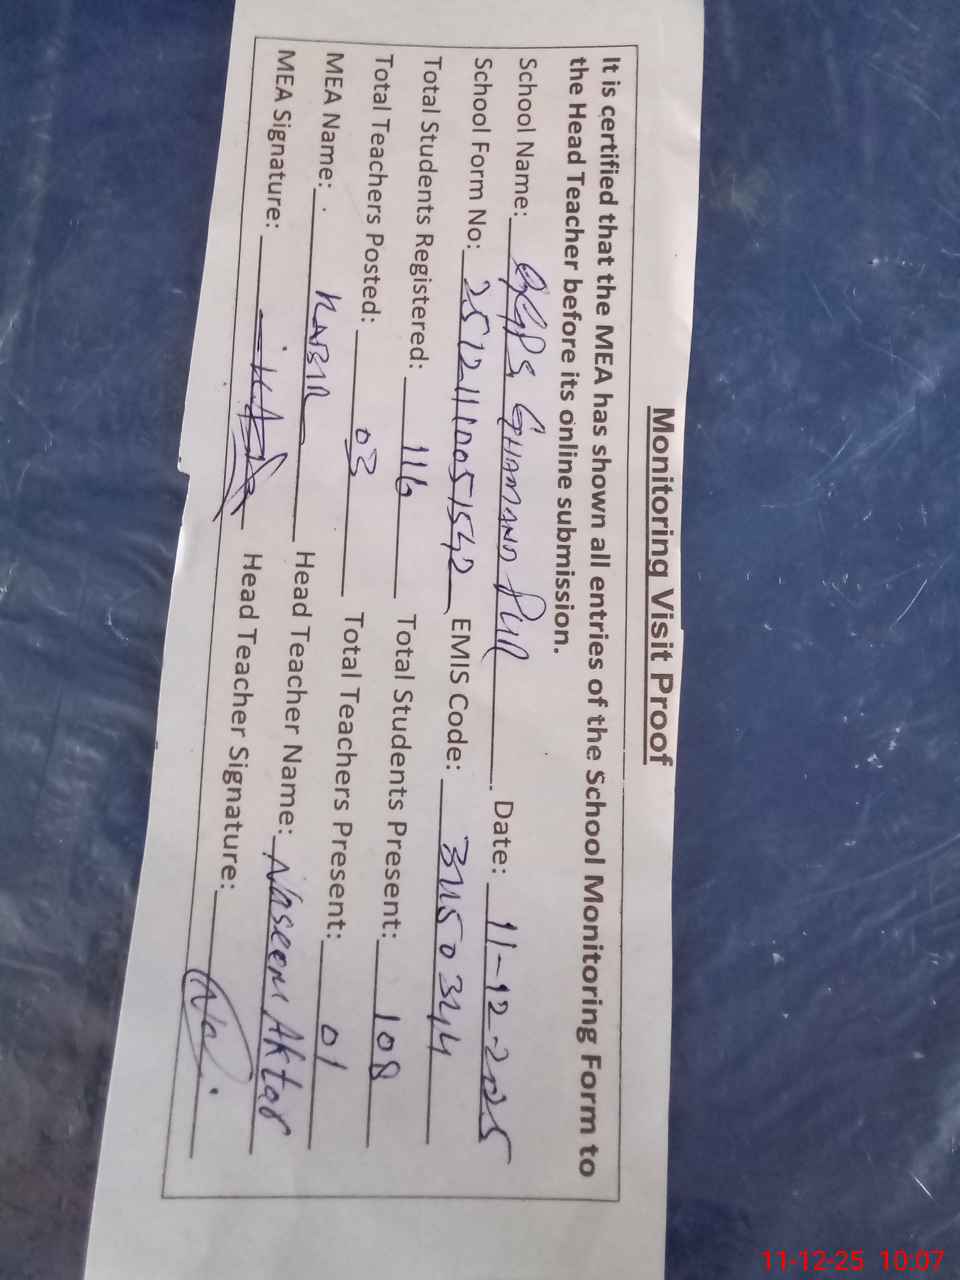 Monitoring Visit Proof
It is certified that the MEA has shown all entries of the School Monitoring Form to
the Head Teacher before its online submission.
School Name: GGPS GHAMAND PUR Date: 11-12-2025
School Form No: 25121110051542 EMIS Code: 31150344
Total Students Registered: 116 Total Students Present: 108
Total Teachers Posted: 03 Total Teachers Present: 01
MEA Name: KABIR Head Teacher Name: Naseem Aktar
MEA Signature: Head Teacher Signature:
11-12-25 10:07